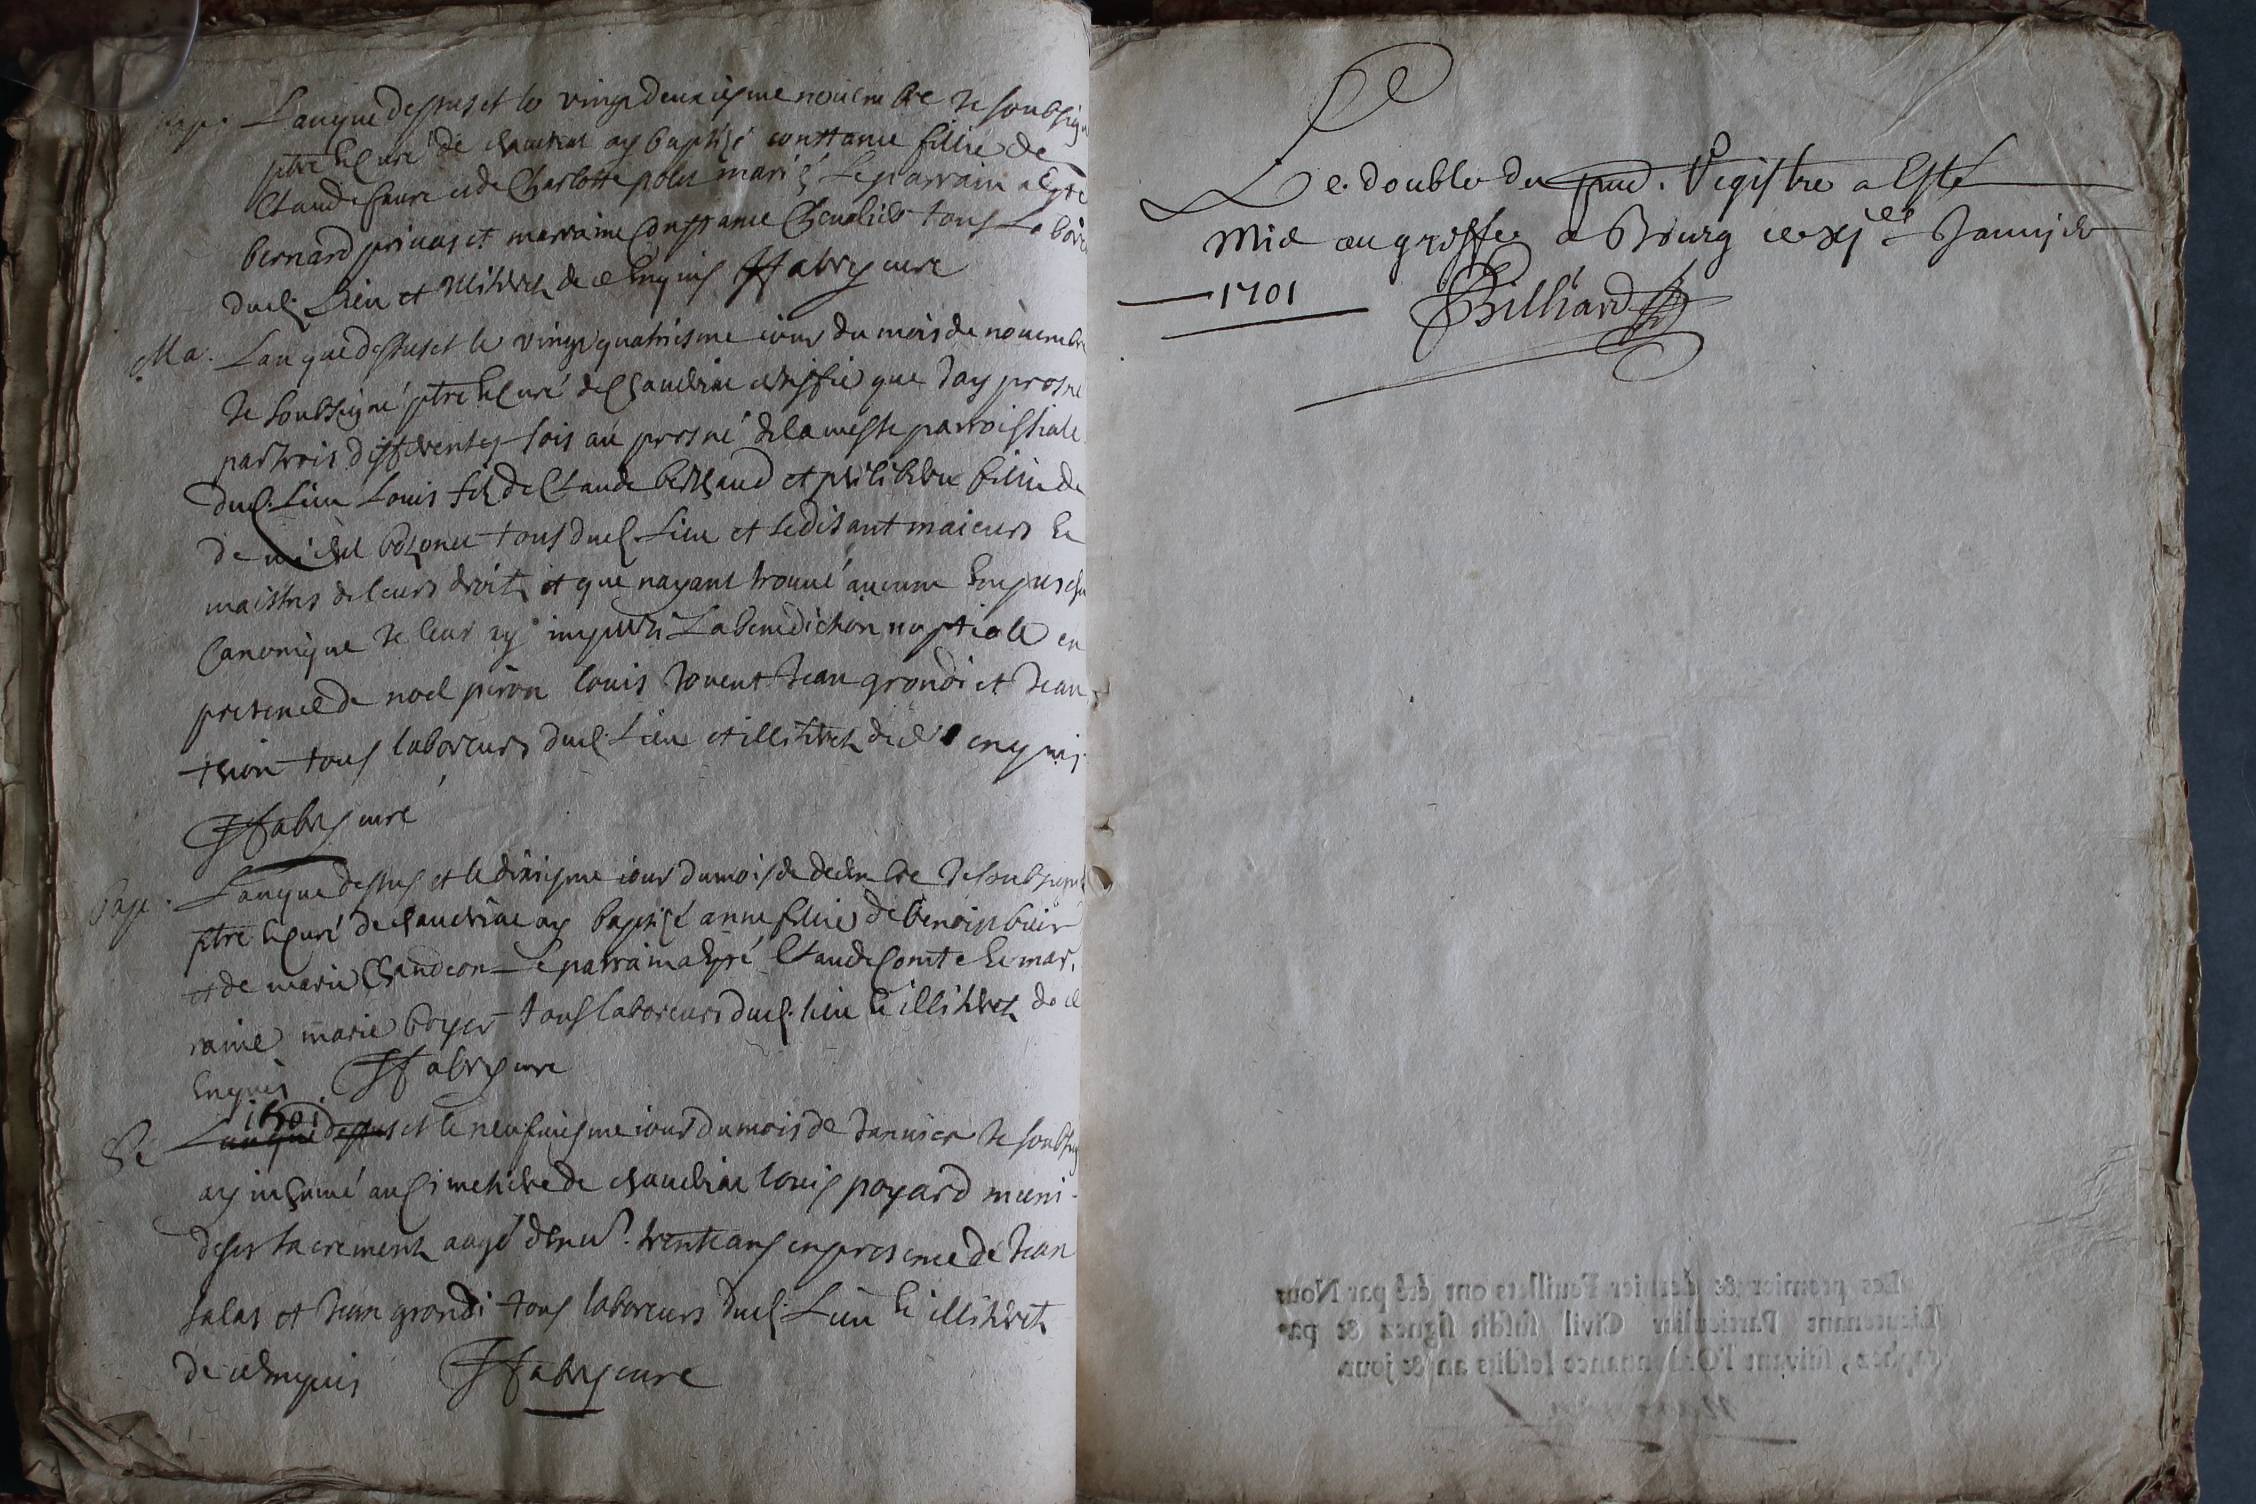 Bap. Lan que dessus et le vingt deuxiesme novembre Je soubsign
ptre & curé de ay baptisé constance fillie de
Claude faure et de Charlotte mariés Le parrain a esté
bernard privas et marraine Constance Chevalier tous
dud. Lieu et illiterés de ce Enquis JFabry curé
Ma. Lan que dessus et le vingt quatriesme iour du mois de novembre
Je soubsigné ptre & curé de certiffie que Jay prosné
par trois differentes fois au prosne de la messe parroissiale
dud. Lieu Louis fils de Claude et philiberte fillie de
de michel tous dud. Lieu et se disant maieurs &
maistres de leurs droits et que nayant trouvé aucune Empesche
Canonique Je leur ay imparti La benediction nuptiale en
presence de noel piron louis Jean grondi et Jean
tous laboreurs dud. Lieu et illiterés de ce enquis
JFabry curé
Bap. Lan que dessus et le dixiesme iour du mois de decembre Je soubsigné
ptre & curé de ay baptisé anne fillie de benoist
et de marie Le parrain a esté Claude Comte & mar,
raine marie boyer tous laboreurs dud. lieu & illiterés de ce
Enquis JFabry curé
1701
Se Lan que dessus et le neufviesme iour du mois de Janvier Je soubsig
ay inhumé au Simetiere de louis poyard muni
de ses sacrements aagé denv. trente ans en presence de Jean
salas et Jean grondi tous laboreurs dud. Lieu & illiterés
de ce Enquis JFabry curé
Le double du pnt. Registre a Esté
Mis au greffe a Bourg ce xj.e Janvier
1701 Billiard
Les premier & dernier Feuillets ont été par Nous
Lieutenant Particulier Civil susdit signez & pa-
raphez, suivant l'Ordonnance lesdits an & jour.